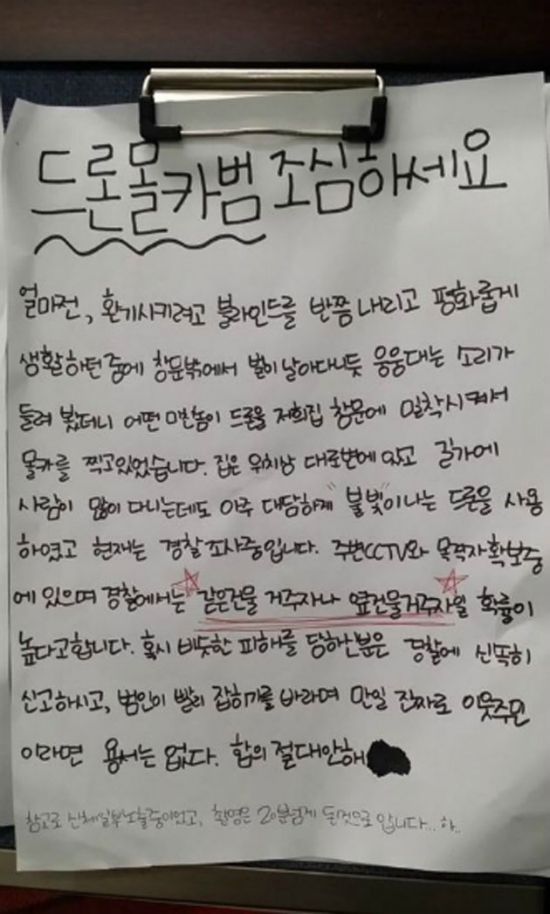 드론몰카범 조심하세요
얼마전, 환기시키려고 블라인드를 반쯤 내리고 평화롭게
생활하던 중에 창문밖에서 벌이 날아다니듯 웅웅대는 소리가
들려 봤더니 어떤 미친놈이 드론을 저희집 창문에 밀착시켜서
몰카를 찍고있었습니다. 집은 위치상 대로변에 있고 길가에
사람이 많이 다니는데도 아주 대담하게 "불빛"이나는 드론을 사용
하였고 현재는 경찰조사중입니다. 주변CCTV와 목격자확보중
에 있으며 경찰에서는 같은건물 거주자나 옆건물거주자일 확률이
높다고합니다. 혹시 비슷한 피해를 당하신분은 경찰에 신속히
신고하시고, 범인이 빨리 잡히기를 바라며 만일 진짜로 이웃주민
이라면 용서는 없다. 합의 절대안해
참고로 신체일부노출중이었고, 촬영은 20분넘게 된것으로 압니다... 하..